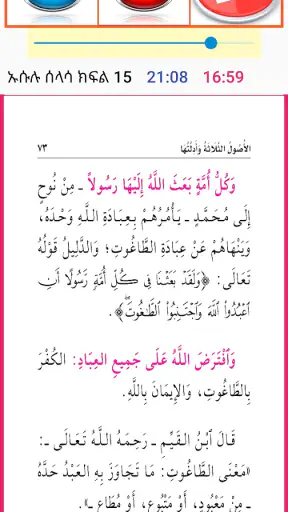 ኡሱሉ ሰላሳ ክፍል 15 21:08 16:59
الأُصُولُ الثَّلَاثَةُ وَأَدِلَّتُهَا ٧٣
وَكُلُّ أُمَّةٍ بَعَثَ اللَّهُ إِلَيْهَا رَسُولاً ـ مِنْ نُوحٍ
إِلَى مُحَمَّدٍ ـ يَأْمُرُهُمْ بِعِبَادَةِ اللَّهِ وَحْدَهُ،
وَيَنْهَاهُمْ عَنْ عِبَادَةِ الطَّاغُوتِ؛ وَالدَّلِيلُ قَوْلُهُ
تَعَالَى: ﴿وَلَقَدْ بَعَثْنَا فِي كُلِّ أُمَّةٍ رَسُولًا أَنِ
اعْبُدُوا اللَّهَ وَاجْتَنِبُوا الطَّاغُوتَ﴾.
وَافْتَرَضَ اللَّهُ عَلَى جَمِيعِ العِبَادِ: الكُفْرَ
بِالطَّاغُوتِ، وَالإِيمَانَ بِاللَّهِ.
قَالَ ابْنُ القَيِّمِ ـ رَحِمَهُ اللَّهُ تَعَالَى ـ:
«مَعْنَى الطَّاغُوتِ: مَا تَجَاوَزَ بِهِ العَبْدُ حَدَّهُ
ـ مِنْ مَعْبُودٍ، أَوْ مَتْبُوعٍ، أَوْ مُطَاعٍ ـ».